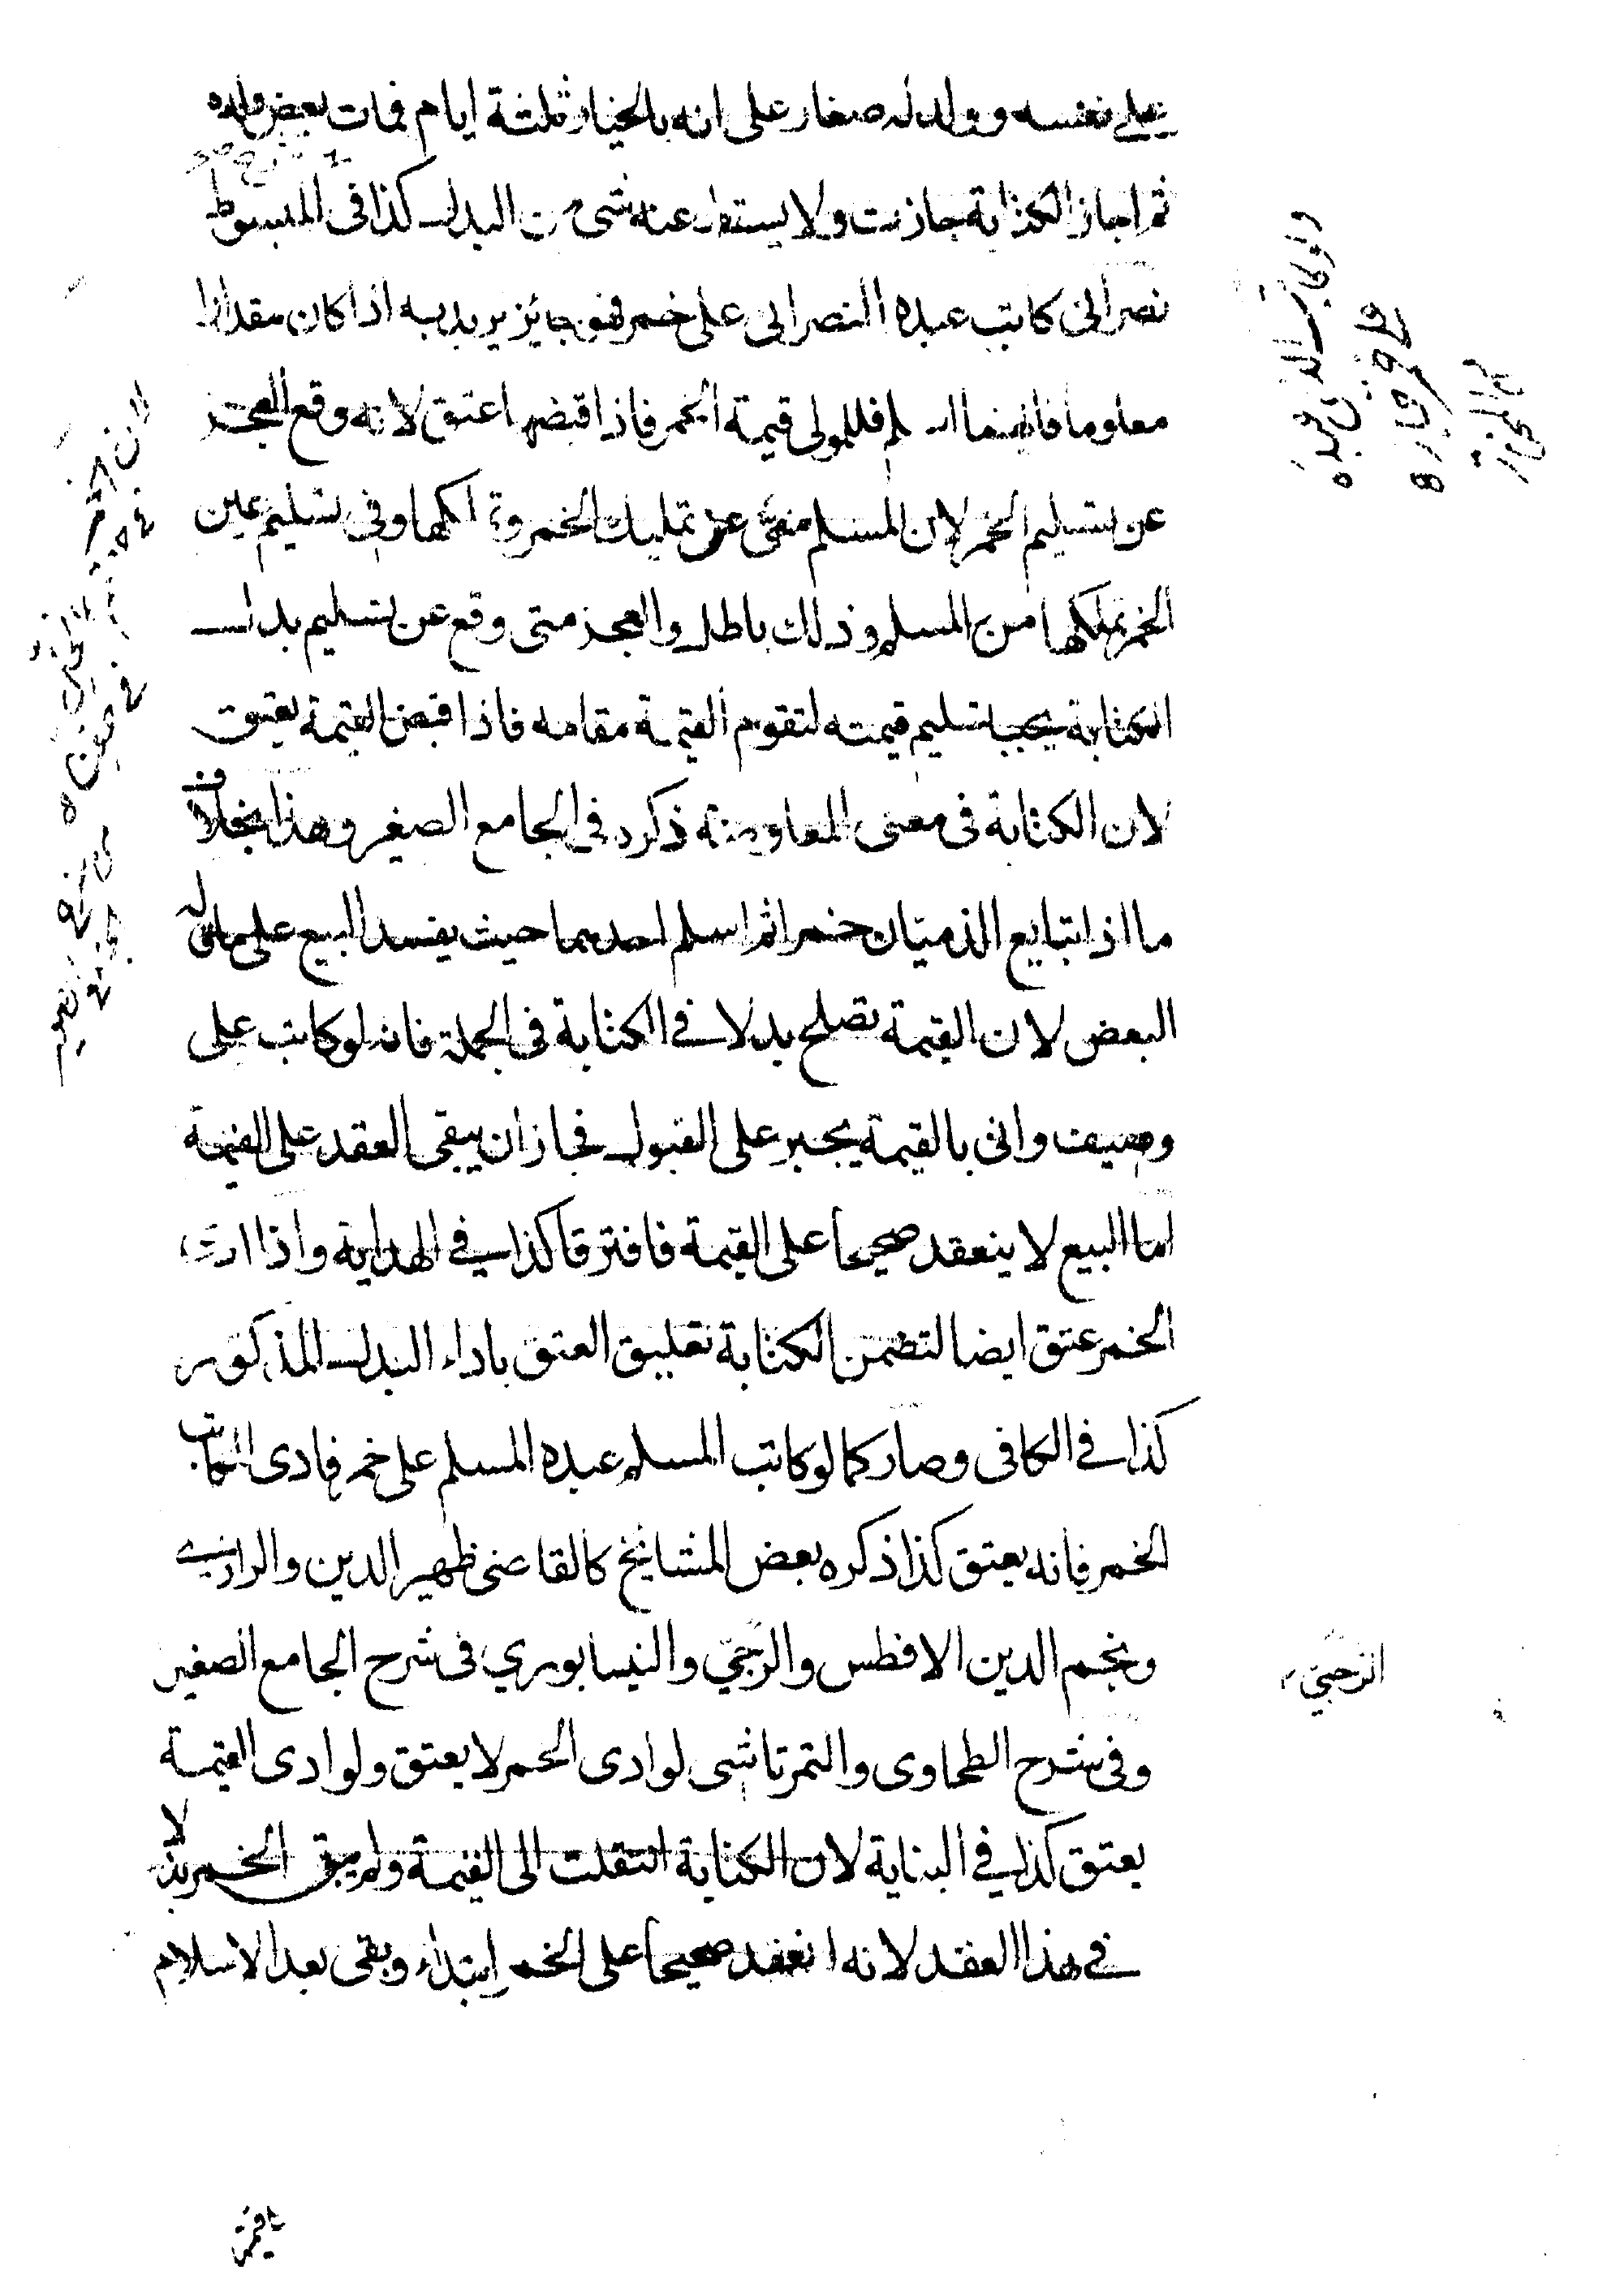 على نفسه وولد له صغار على انه بالخيار ثلثة ايام فمات بعض ولده
ثم اجاز الكتابة جازت ولا يسقط عنه شئ من البدل كذا فى المبسوط
نصرانى كاتب عبده النصرانى على خمر فهو جائز يريد به اذا كان مقدارا
معلوما فايهما اسلم فللمولى قيمة الخمر فاذا قبضها عتق لانه وقع العجز
عن تسليم الخمر لان المسلم منهى عن تمليك الخمر وتملكها وفى تسليم عين
الخمر تملكها من المسلم وذلك باطل والعجز متى وقع عن تسليم بدل
الكتابة يجب تسليم قيمته لتقوم القيمة مقامه فاذا قبض القيمة يعتق
لان الكتابة فى معنى المعاوضة ذكره فى الجامع الصغير وهذا بخلاف
ما اذا تبايع الذميان خمرا ثم اسلم احدهما حيث يفسد البيع على ما قاله
البعض لان القيمة تصلح بدلا فى الكتابة فى الجملة فانه لو كاتب على
وصيف واتى بالقيمة يجبر على القبول فجاز ان يبقى العقد على القيمة
اما البيع لا ينعقد صحيحا على القيمة فافترقا كذا فى الهداية واذا ادى
الخمر عتق ايضا لتضمن الكتابة تعليق العتق باداء البدل المذكور
كذا فى الكافى وصار كما لو كاتب المسلم عبده المسلم على خمر فادى المكاتب
الخمر فانه يعتق كذا ذكره بعض المشايخ كالقاضى ظهير الدين والرازى
ونجم الدين الافطس والزجى والنيسابوري فى شرح الجامع الصغير
الزجي
وفى شرح الطحاوى والتمرتاشى لو ادى الخمر لا يعتق ولو ادى القيمة
يعتق كذا فى البناية لان الكتابة انتقلت الى القيمة ولم يبق الخمر بدلا
فى هذا العقد لانه انعقد صحيحا على الخمر ابتداء وبقى بعد الاسلام